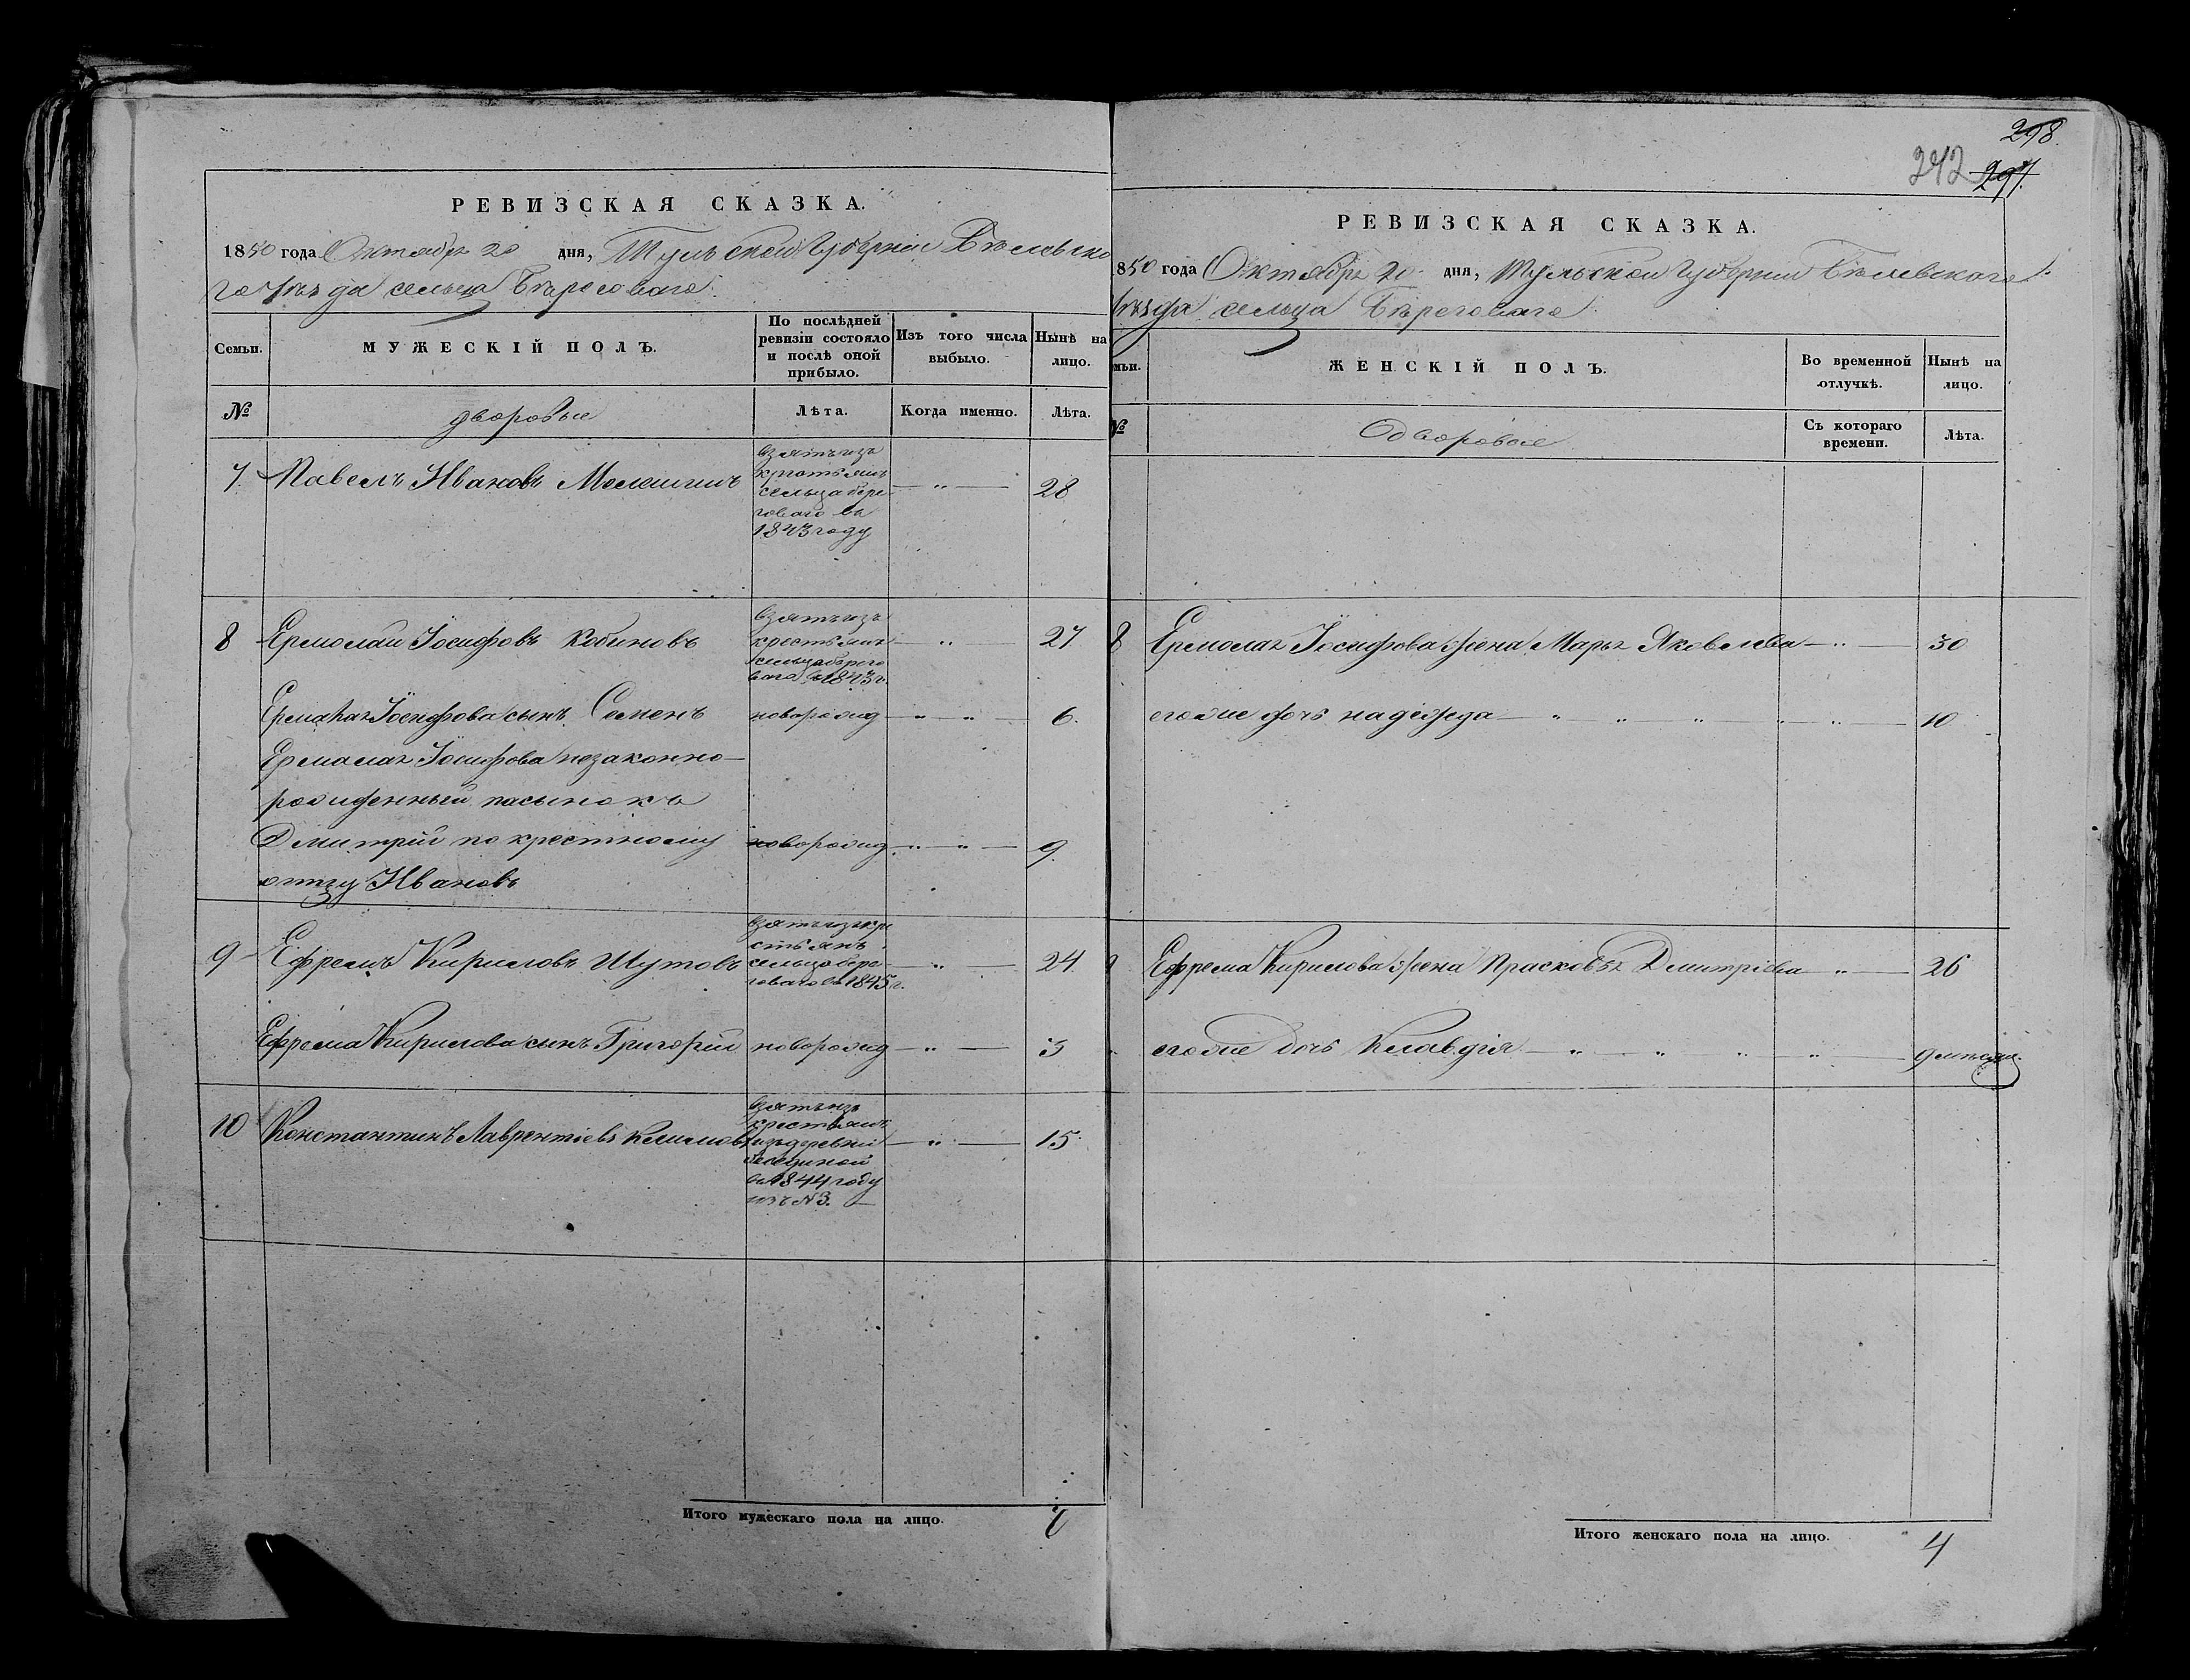 РЕВИЗСКАЯ СКАЗКА.
1850 года Октября 20 дня, Тульской Губерніи Бѣлевско
го Уѣзда сельца Берегсоваго
Семьи.
МУЖЕСКІЙ ПОЛЪ.
По послѣдней
ревизіи состояло
и послѣ оной
прибыло.
Изъ того числа
выбыло.
Нынѣ на
лицо.
№
дворовые
Лѣта.
Когда именно.
Лѣта.
7. Павелъ Ивановъ
взятъ изъ
крестьянъ
сельца бере
говаго въ
1843 году
— „ —
28
8 Ермолай Іосифовъ Кобиновъ
взятъ изъ
крестьянъ
сельца берего
ваго въ 1843 г.
— „ —
27
Ермолая Іосифова сынъ Семенъ
новорожд
— „ — „ —
6.
Ермолая Іосифова незаконно—
рожденный пасынокъ
Дмитрій по крестному
новорожд
— „ — „ —
9.
отцу Ивановъ
9 Ефремъ Кириловъ Шутовъ
взятъ изъ кре
стьянъ
сельца бере
говаго въ 1845 г.
— „ —
24.
Ефрема Кирилова сынъ Григорій
новорожд
— „ —
3
10 Константинъ Лаврентіевъ Климовъ
взятъ изъ
крестьянъ
изъ деревни
въ 1844 году
изъ №3. —
— „ —
15.
Итого мужескаго пола на лицо.
7
298.
297.
242
РЕВИЗСКАЯ СКАЗКА.
850 года Октября 20 дня, Тульской Губерніи Бѣлевскаго
уѣзда сельца Береговаго
мьи.
ЖЕНСКІЙ ПОЛЪ.
Во временной
отлучкѣ.
Нынѣ на
лицо.
№
дворовые
Съ котораго
времени.
Лѣта.
8 Ермолая Іосифова жена Марья Яковлева — „ — 30
егоже дочь надежда — „ „ „ „ „ — 10
9 Ефрема Кирилова жена Прасковья Дмитріева „ — 26
егоже дочь Клавдія — „ — „ „ „ — 9 мѣсяц.
Итого женскаго пола на лицо.
4